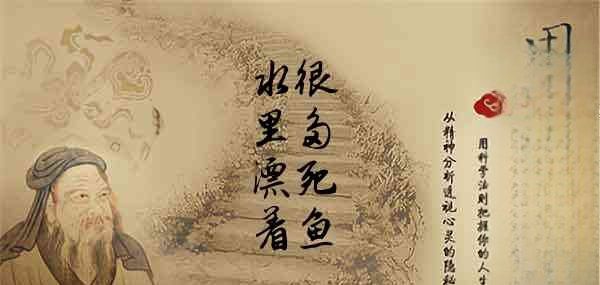 水里漂着
很多死鱼
从精神分析透视心灵的隐秘
用科学法则把握你的人生